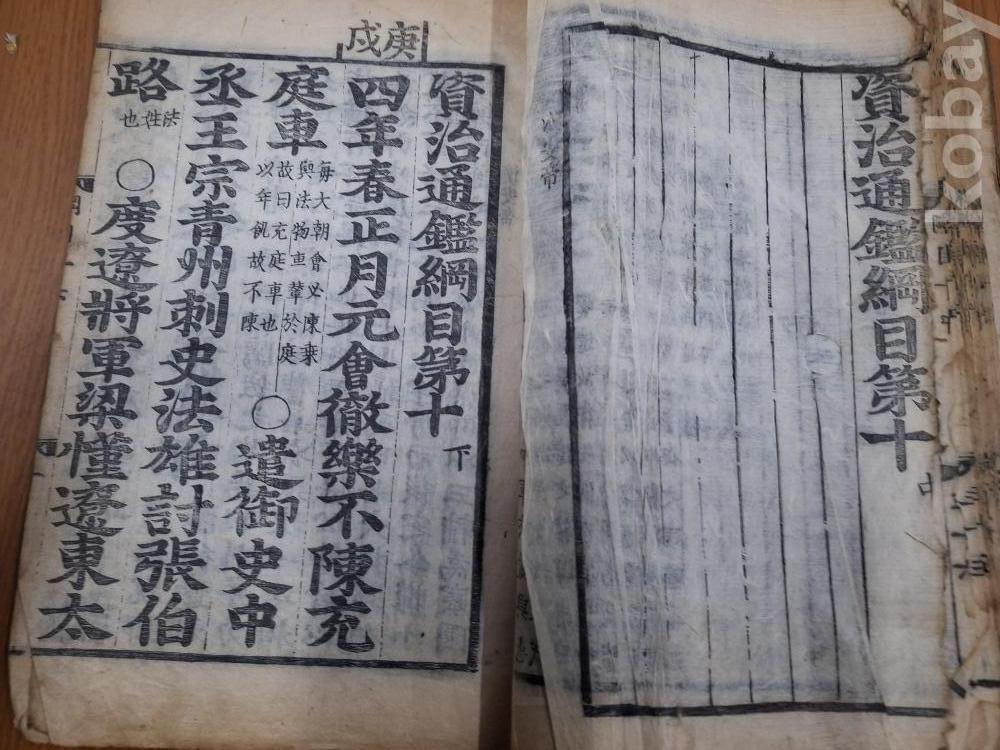 資治通鑑綱目第十
庚戌
資治通鑑綱目第十下
四年春正月元會徹樂不陳充
庭車
每大朝會必陳乗
輿法物車輦於庭
故曰充庭車也
以年饑故不陳
〇遣御史中
丞王宗青州刺史法雄討張伯
路
法姓
也
〇度遼將軍梁慬遼東太
kobay